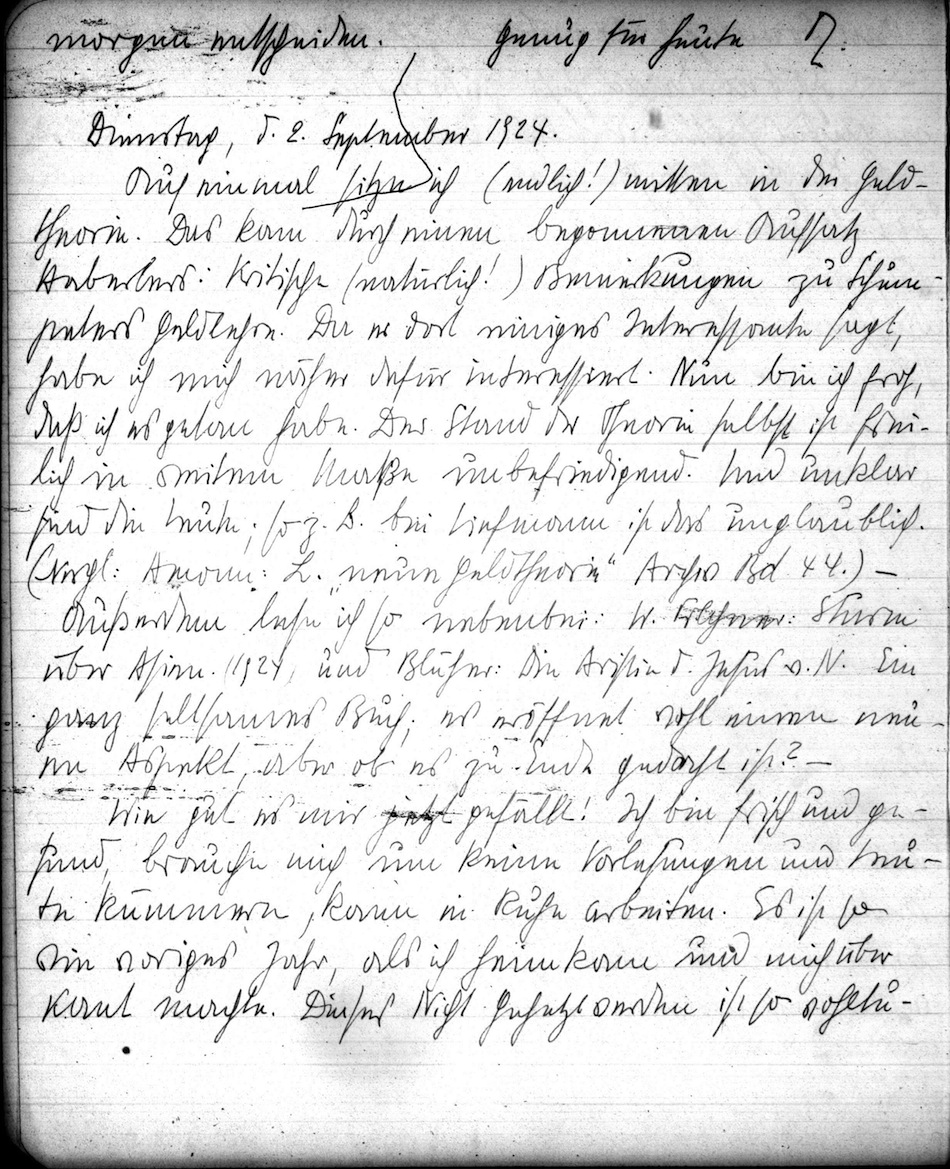 morgen entscheiden. Genug für heute
Dienstag, d. 2. September 1924.
Auf einmal sitze ich (endlich!) mitten in der Geld-
theorie. Das kam durch einen begonnenen Aufsatz
Haberlers: Kritische (natürlich!) Bemerkungen zu Schum-
peters Geldlehre. Da er dort einiges Interessante sagt,
habe ich mich näher dafür interessiert. Nun bin ich froh,
daß ich es getan habe. Der Stand der Theorie selbst ist frei-
lich in weitem Maße unbefriedigend. Und unklar
sind die Leute; so z. B. bei Liefmann ist das unglaublich.
(Vergl: Amonn: L. "neue Geldtheorie" Archiv Bd 44.) —
Außerdem lese ich so nebenbei: W. Filchner: Sturm
über Asien. (1924) und Blüher: Die Aristie d. Jesus v. N. Ein
ganz seltsames Buch; es eröffnet wohl einen neu-
en Aspekt, aber ob es zu Ende gedacht ist? —
Wie gut es mir jetzt gefällt! Ich bin frisch und ge-
sund, brauche mich um keine Vorlesungen und Leu-
te kümmern, kann in Ruhe arbeiten. Es ist so
wie voriges Jahr, als ich heimkam und mich über
Kant machte. Dieses Nicht Gehetztwerden ist so wohltu-